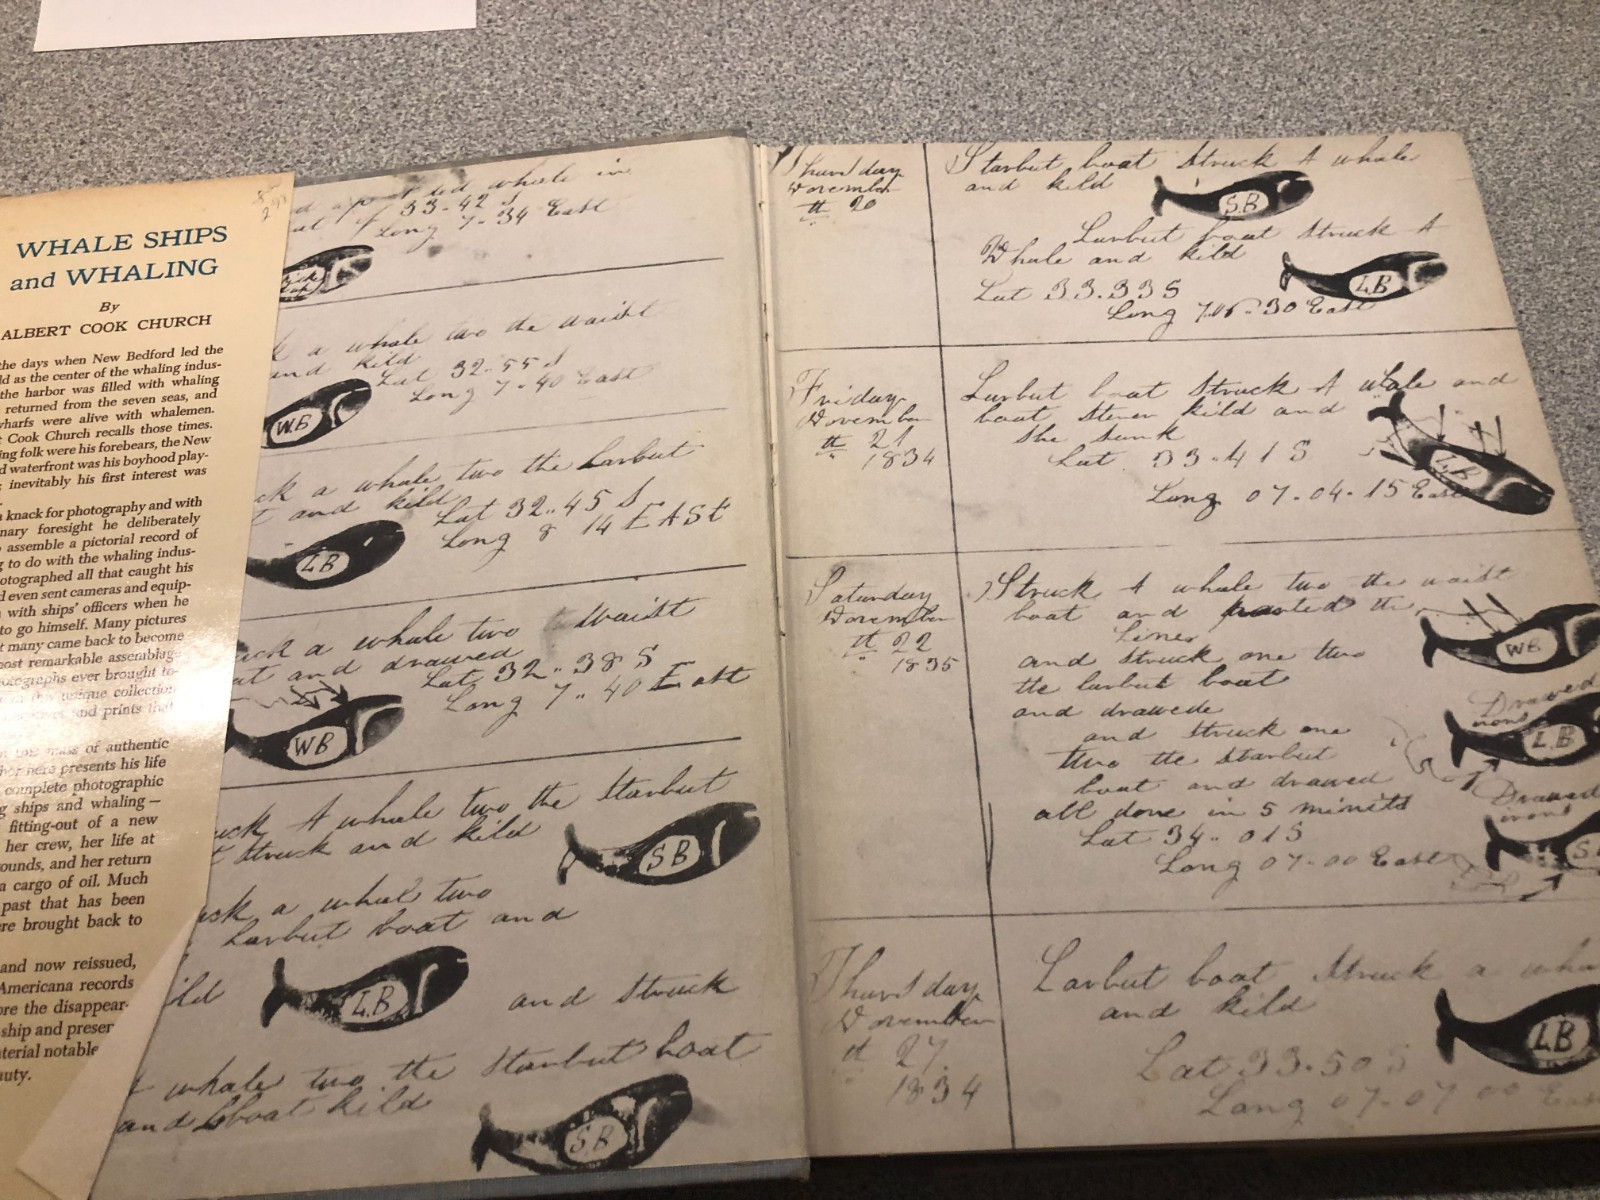 WHALE SHIPS
and WHALING
By
ALBERT COOK CHURCH
the days when New Bedford led the
as the center of the whaling indus-
the harbor was filled with whaling
returned from the seven seas, and
wharfs were alive with whalemen.
Cook Church recalls those times.
ing folk were his forebears, the New
waterfront was his boyhood play-
inevitably his first interest was
knack for photography and with
nary foresight he deliberately
assemble a pictorial record of
to do with the whaling indus-
otographed all that caught his
even sent cameras and equip-
with ships' officers when he
to go himself. Many pictures
many came back to become
ost remarkable assemblage
otographs ever brought to-
unique collection
and prints that
mass of authentic
here presents his life
complete photographic
ships and whaling—
fitting-out of a new
her crew, her life at
ounds, and her return
a cargo of oil. Much
past that has been
ere brought back to
and now reissued,
Americana records
ore the disappear-
ship and preser
aterial notable
auty.
whale in
33-42 S
Long 7-34 East
a whale two the waist
and kild
Lat 32-55 S
Long 7-40 East
W.B
ck a whale two the Larbut
and kild
Lat 32-45 S
Long 8 14 EASt
L.B
uck a whale two Waist
at and drawed
Lat 32-38 S
Long 7-40 East
WB
uck A whale two the Starbut
t Struck and kild
S B
uck a whal two
Larbut boat and
L.B
ild and Struck
whale two the Starbut boat
and boat kild
S.B
Thursday
November
th 20
Starbut boat Struck A whale
and kild
S.B
Larbut boat Struck A
Whale and kild
L.B
Lat 33.33 S
Long 7.06-30 East
Friday
November
th 21
1834
Larbut boat Struck A whale and
boat Steven kild and
She Sunk
L.B
Lat 33-41 S
Long 07-04-15 East
Saturday
November
th 22
1835
Struck A whale two the waist
boat and parted the
Lines
W B
and Struck one two
the larbut boat
and drawede
Drawed
irons
L.B
and Struck one
two the Starbut
boat and drawed
all done in 5 minits
Drawed
irons
S
Lat 34-01 S
Long 07-00 East
Thursday
November
th 27
1834
Larbut boat Struck a wha
and kild
L.B
Lat 33-50 S
Long 07-07 00 East